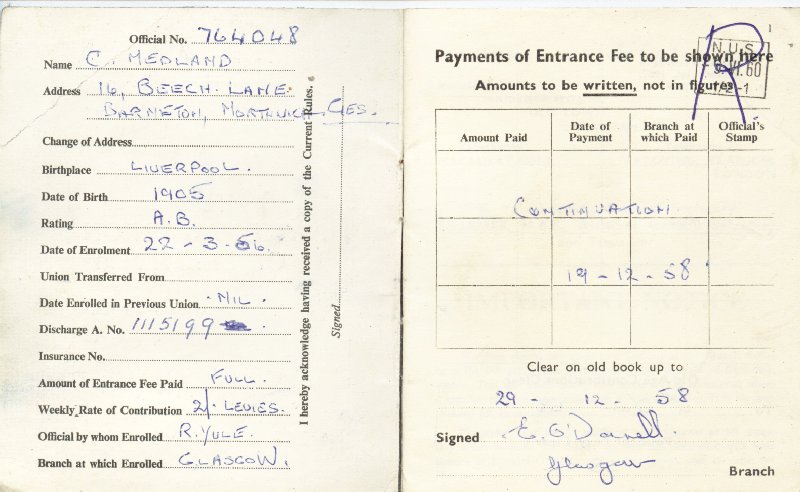 Official No. 764048
Name C. MEDLAND
Address 16, BEECH LANE.
BARNTON, NORTHWICH, CHES.
Change of Address
Birthplace LIVERPOOL.
Date of Birth 1905
Rating A.B.
Date of Enrolment 22 - 3 - 56.
Union Transferred From
Date Enrolled in Previous Union NIL.
Discharge A. No. 1115199
Insurance No.
Amount of Entrance Fee Paid FULL.
Weekly Rate of Contribution 2/- LEVIES.
Official by whom Enrolled R. YULE.
Branch at which Enrolled GLASGOW.
I hereby acknowledge having received a copy of the Current Rules.
Signed
1
Payments of Entrance Fee to be shown here
N.U.S.
60
Amounts to be written, not in figures
Amount Paid
Date of Payment
Branch at which Paid
Official's Stamp
CONTINUATION
19 - 12 - 58
Clear on old book up to
29 - 12 - 58
Signed E. O'Donnell.
Glasgow Branch